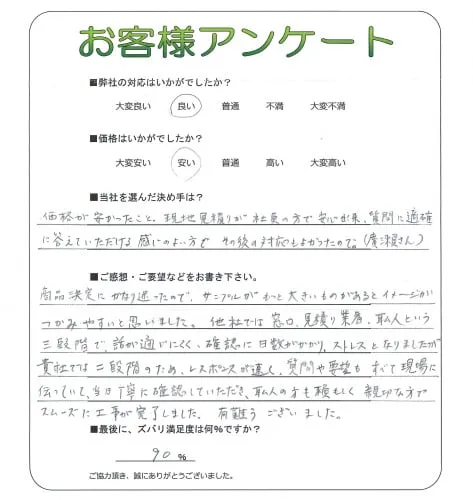 お客様アンケート
■弊社の対応はいかがでしたか？
大変良い 良い 普通 不満 大変不満
■価格はいかがでしたか？
大変安い 安い 普通 高い 大変高い
■当社を選んだ決め手は？
価格が安かったこと、現地見積りが社員の方で安心出来、質問に適確
に答えていただける感じのよい方で その後の対応もよかったので。(廣瀬さん)
■ご感想・ご要望などをお書き下さい。
商品決定にかなり迷ったので、サンプルがもっと大きいものがあるとイメージが
つかみやすいと思いました。他社では窓口、見積り業者、職人という
三段階で、話が通じにくく、確認に日数がかかり、ストレスとなりましたが
貴社では二段階のため、レスポンスが速く、質問や要望もすべて現場に
伝っていて、当日丁寧に確認していただき、職人の方も頼もしく親切な方で
スムーズに工事が完了しました。有難うございました。
■最後に、ズバリ満足度は何%ですか？
90 %
ご協力頂き、誠にありがとうございました。